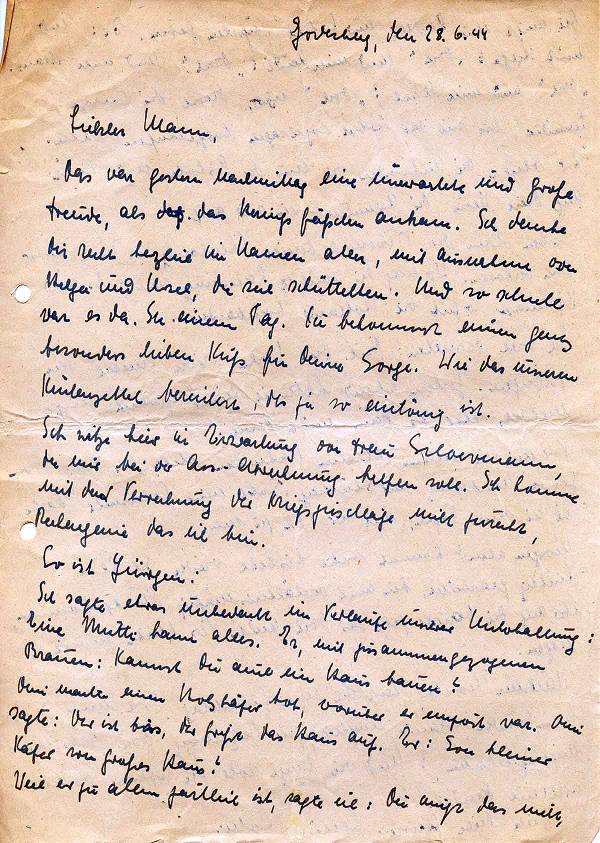 Godesberg, den 28.6.44
Liebster Mann,
Das war gestern nachmittag eine unerwartete und große
Freude, als das ankam. Ich danke
Dir recht herzlich im Namen aller, mit Ausnahme von
Helga und Ursel, die sich schüttelten. Und so schnell
war es da. In einem Tag. Du bekommst einen ganz
besonders lieben Kuß für Deine Sorge. Wie das unseren
Küchenzettel bereichert, der ja so eintönig ist.
Ich sitze hier in Erwartung von Frau
die mir bei der Abrechnung helfen soll. Ich komme
mit der Verrechnung der nicht zurecht,
Rechengenie das ich bin.
So ist Jürgen:
Ich sagte etwas unbedacht im Verlaufe unserer Unterhaltung:
Eine Mutti kann alles. Er, mit zusammengezogenen
Brauen: Kannst Du auch ein Haus bauen?
Omi machte einen Holzkäfer tot, worüber er empört war. Omi
sagte: Der ist bös, der frißt das Haus auf. Er: Son kleiner
Käfer son großes Haus?
Weil er zu allem zärtlich ist, sagte ich: Du magst das nicht,